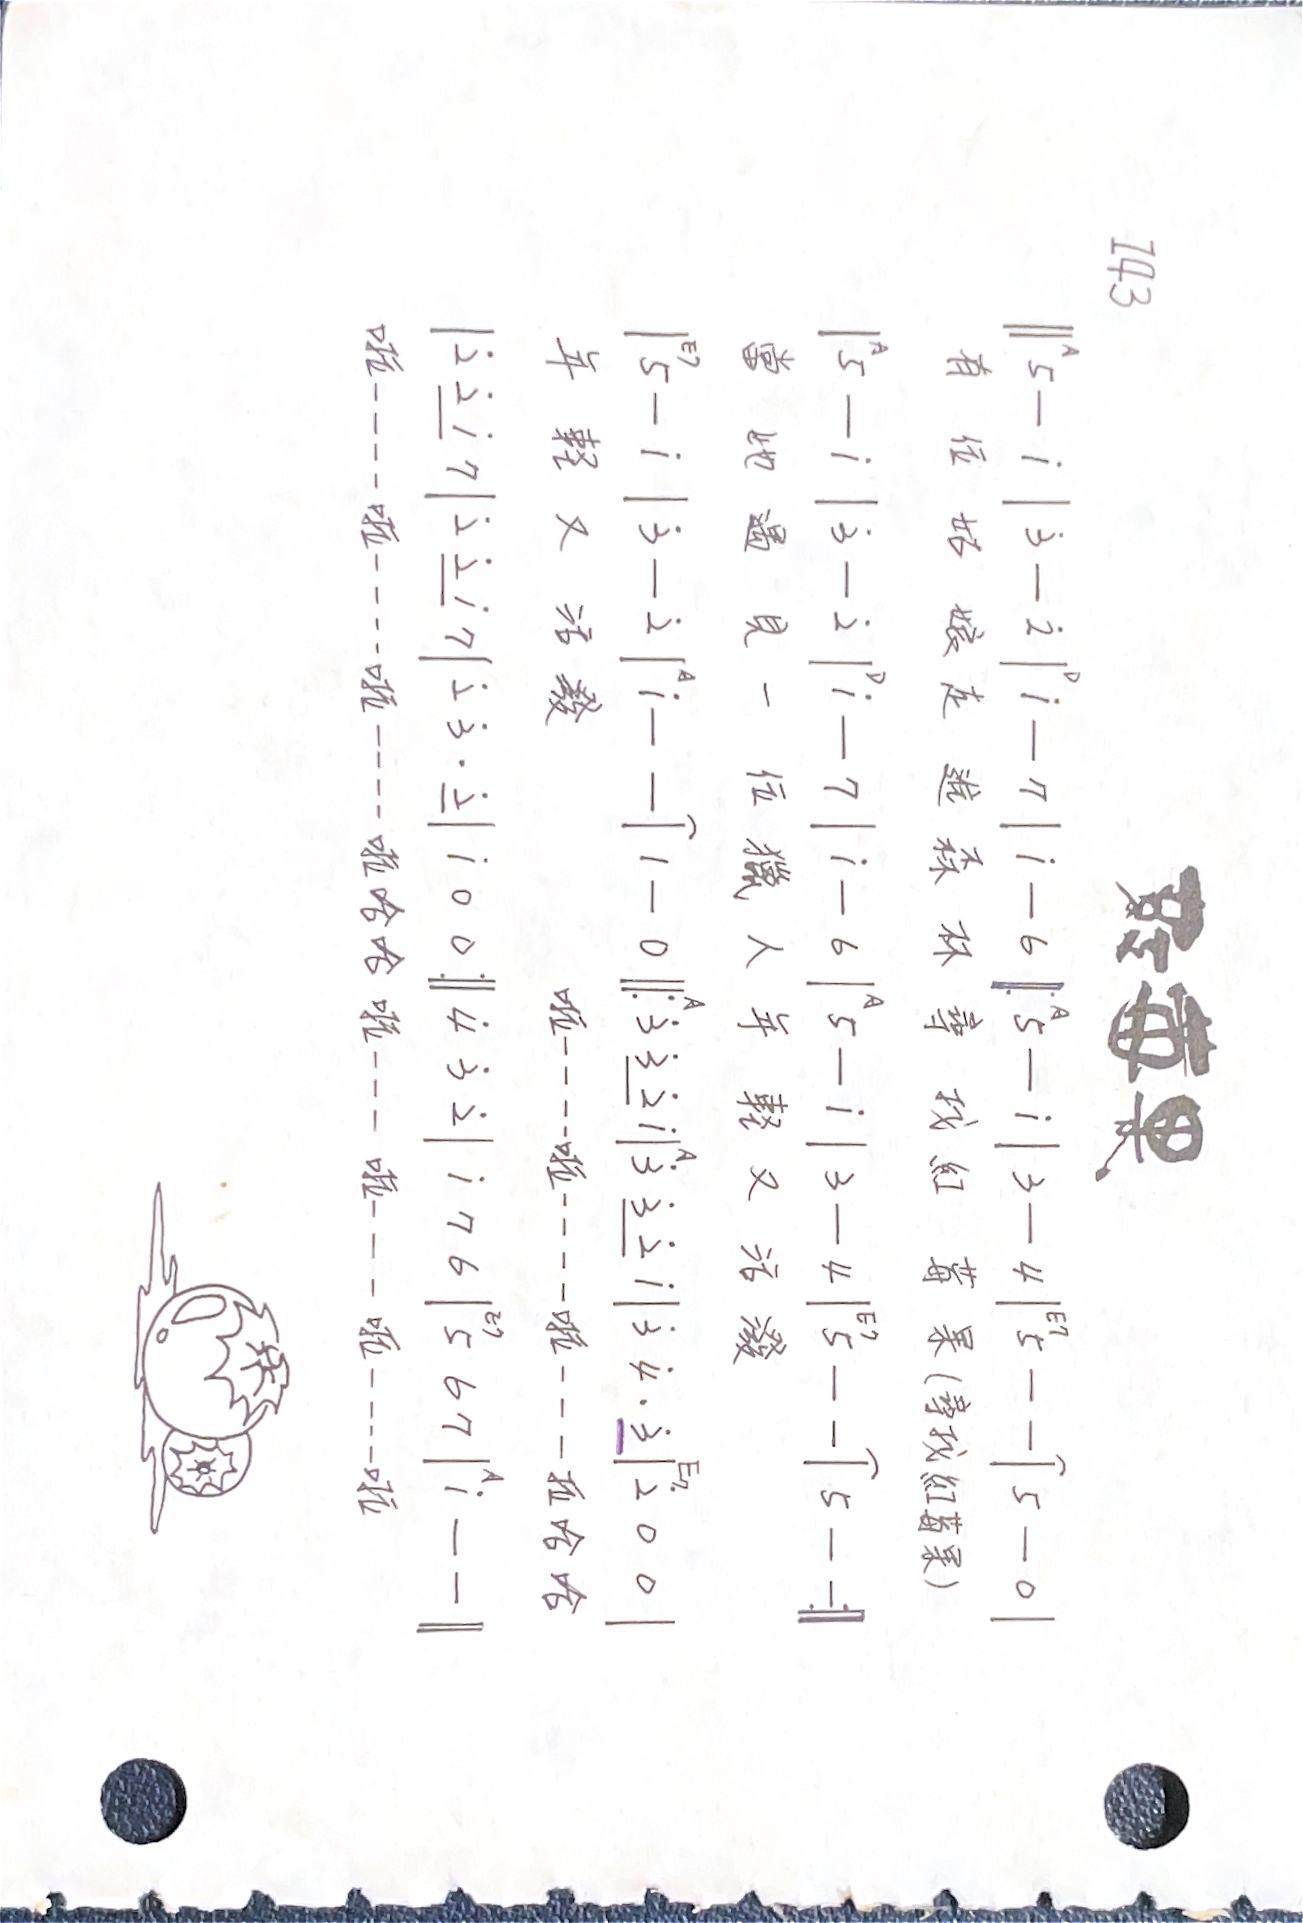 143
莓果
‖ A 5 — i | 3̇ — 2̇ | D i — 7 | i — 6 ‖: A 5 — i | 3 — 4 | E7 5 — — | 5 — 0 |
有位姑娘走進森林尋找紅莓果(尋找紅莓果)
| A 5 — i | 3̇ — 2̇ | D i — 7 | i — 6 | A 5 — i | 3 — 4 | E7 5 — — | 5 — — :‖
當她遇見一位獵人年輕又活潑
| E7 5 — i | 3̇ — 2̇ | A i — — | 1 — 0 ‖: A 3̇ 3̇ 2̇ i | A 3̇ 3̇ 2̇ i | 3̇ 4̇ . 3̇ | E7 2̇ 0 0 |
年輕又活潑 啦----啦----啦---拉哈哈
| 2̇ 2̇ i 7 | 2̇ 2̇ i 7 | 2̇ 3̇ . 2̇ | i 0 0 :‖ 4̇ 3̇ 2̇ | i 7 6 | E7 5 6 7 | A i — — ‖
啦----啦----啦----啦哈哈 啦--- 啦---- 啦----啦